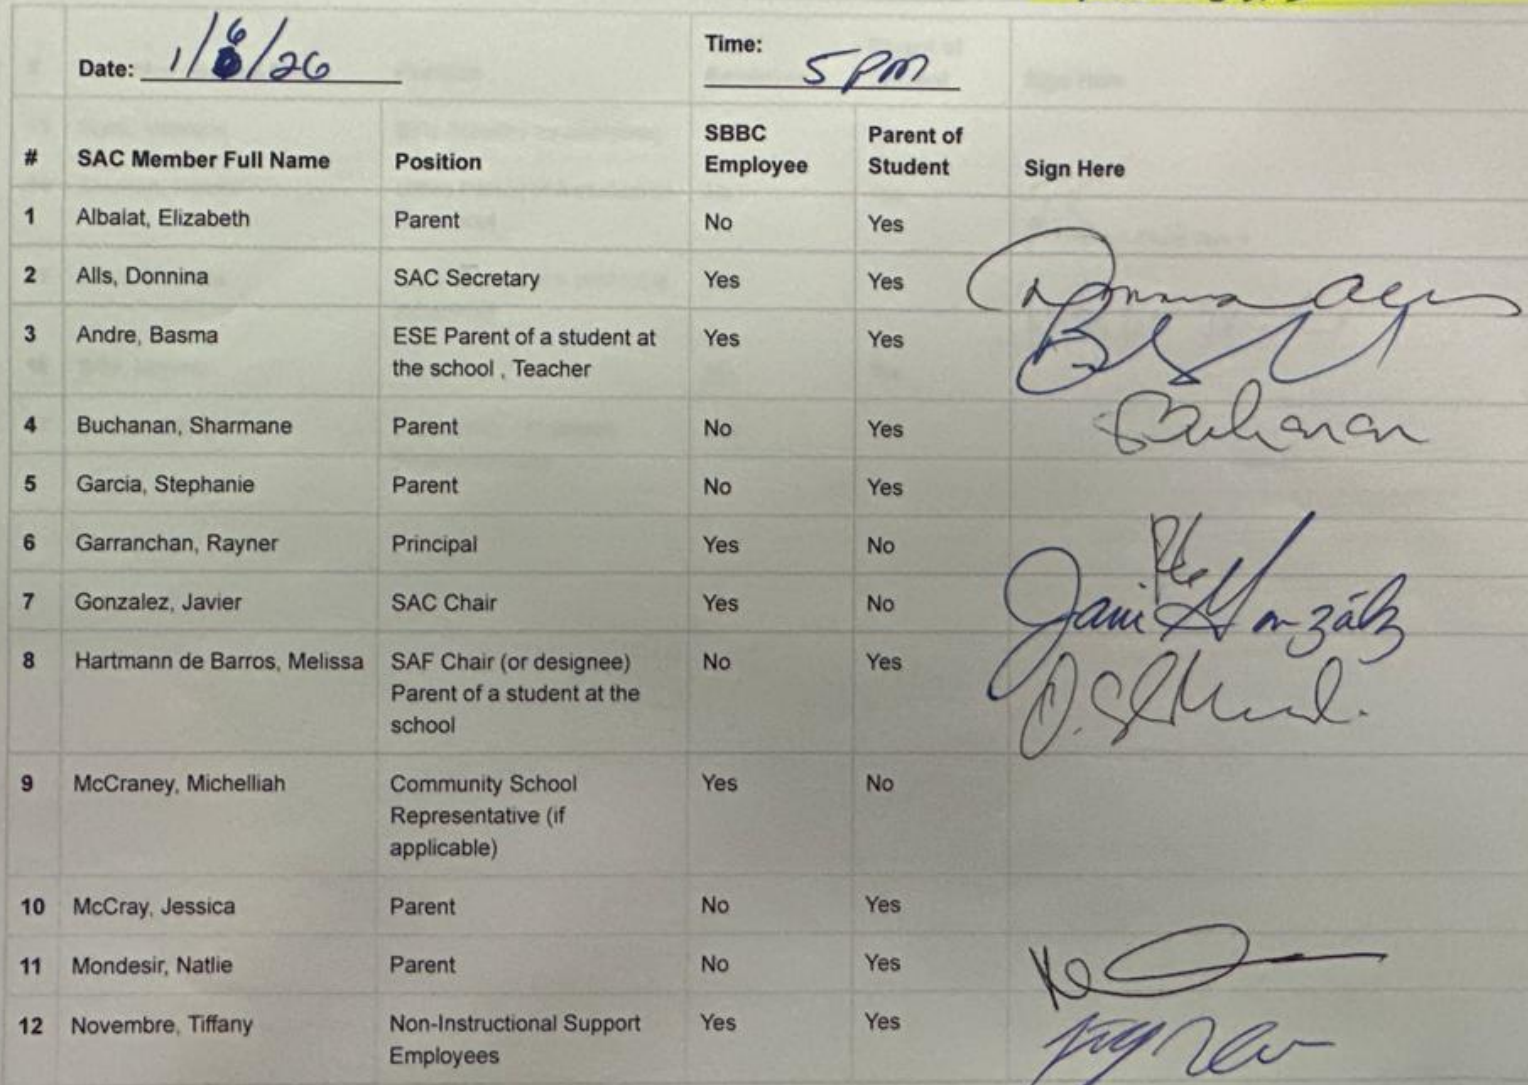 Date: 1/6/26 Time: 5 PM
# SAC Member Full Name Position SBBC Employee Parent of Student Sign Here
1 Albalat, Elizabeth Parent No Yes
2 Alls, Donnina SAC Secretary Yes Yes
3 Andre, Basma ESE Parent of a student at Yes Yes
the school , Teacher
4 Buchanan, Sharmane Parent No Yes Buchanan
5 Garcia, Stephanie Parent No Yes
6 Garranchan, Rayner Principal Yes No
7 Gonzalez, Javier SAC Chair Yes No
8 Hartmann de Barros, Melissa SAF Chair (or designee) No Yes
Parent of a student at the
school
9 McCraney, Michelliah Community School Yes No
Representative (if
applicable)
10 McCray, Jessica Parent No Yes
11 Mondesir, Natlie Parent No Yes
12 Novembre, Tiffany Non-Instructional Support Yes Yes
Employees